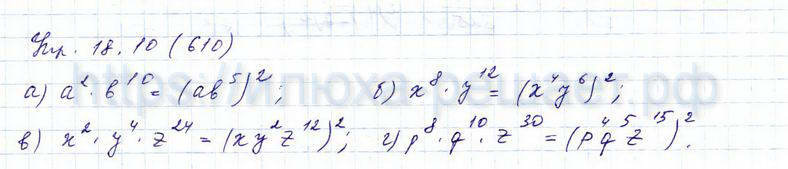 Упр. 18.10 (610)
а) a²·b¹⁰ = (ab⁵)²; б) x⁸·y¹² = (x⁴y⁶)²;
в) x²·y⁴·z²⁴ = (xy²z¹²)²; г) p⁸·q¹⁰·z³⁰ = (p⁴q⁵z¹⁵)².